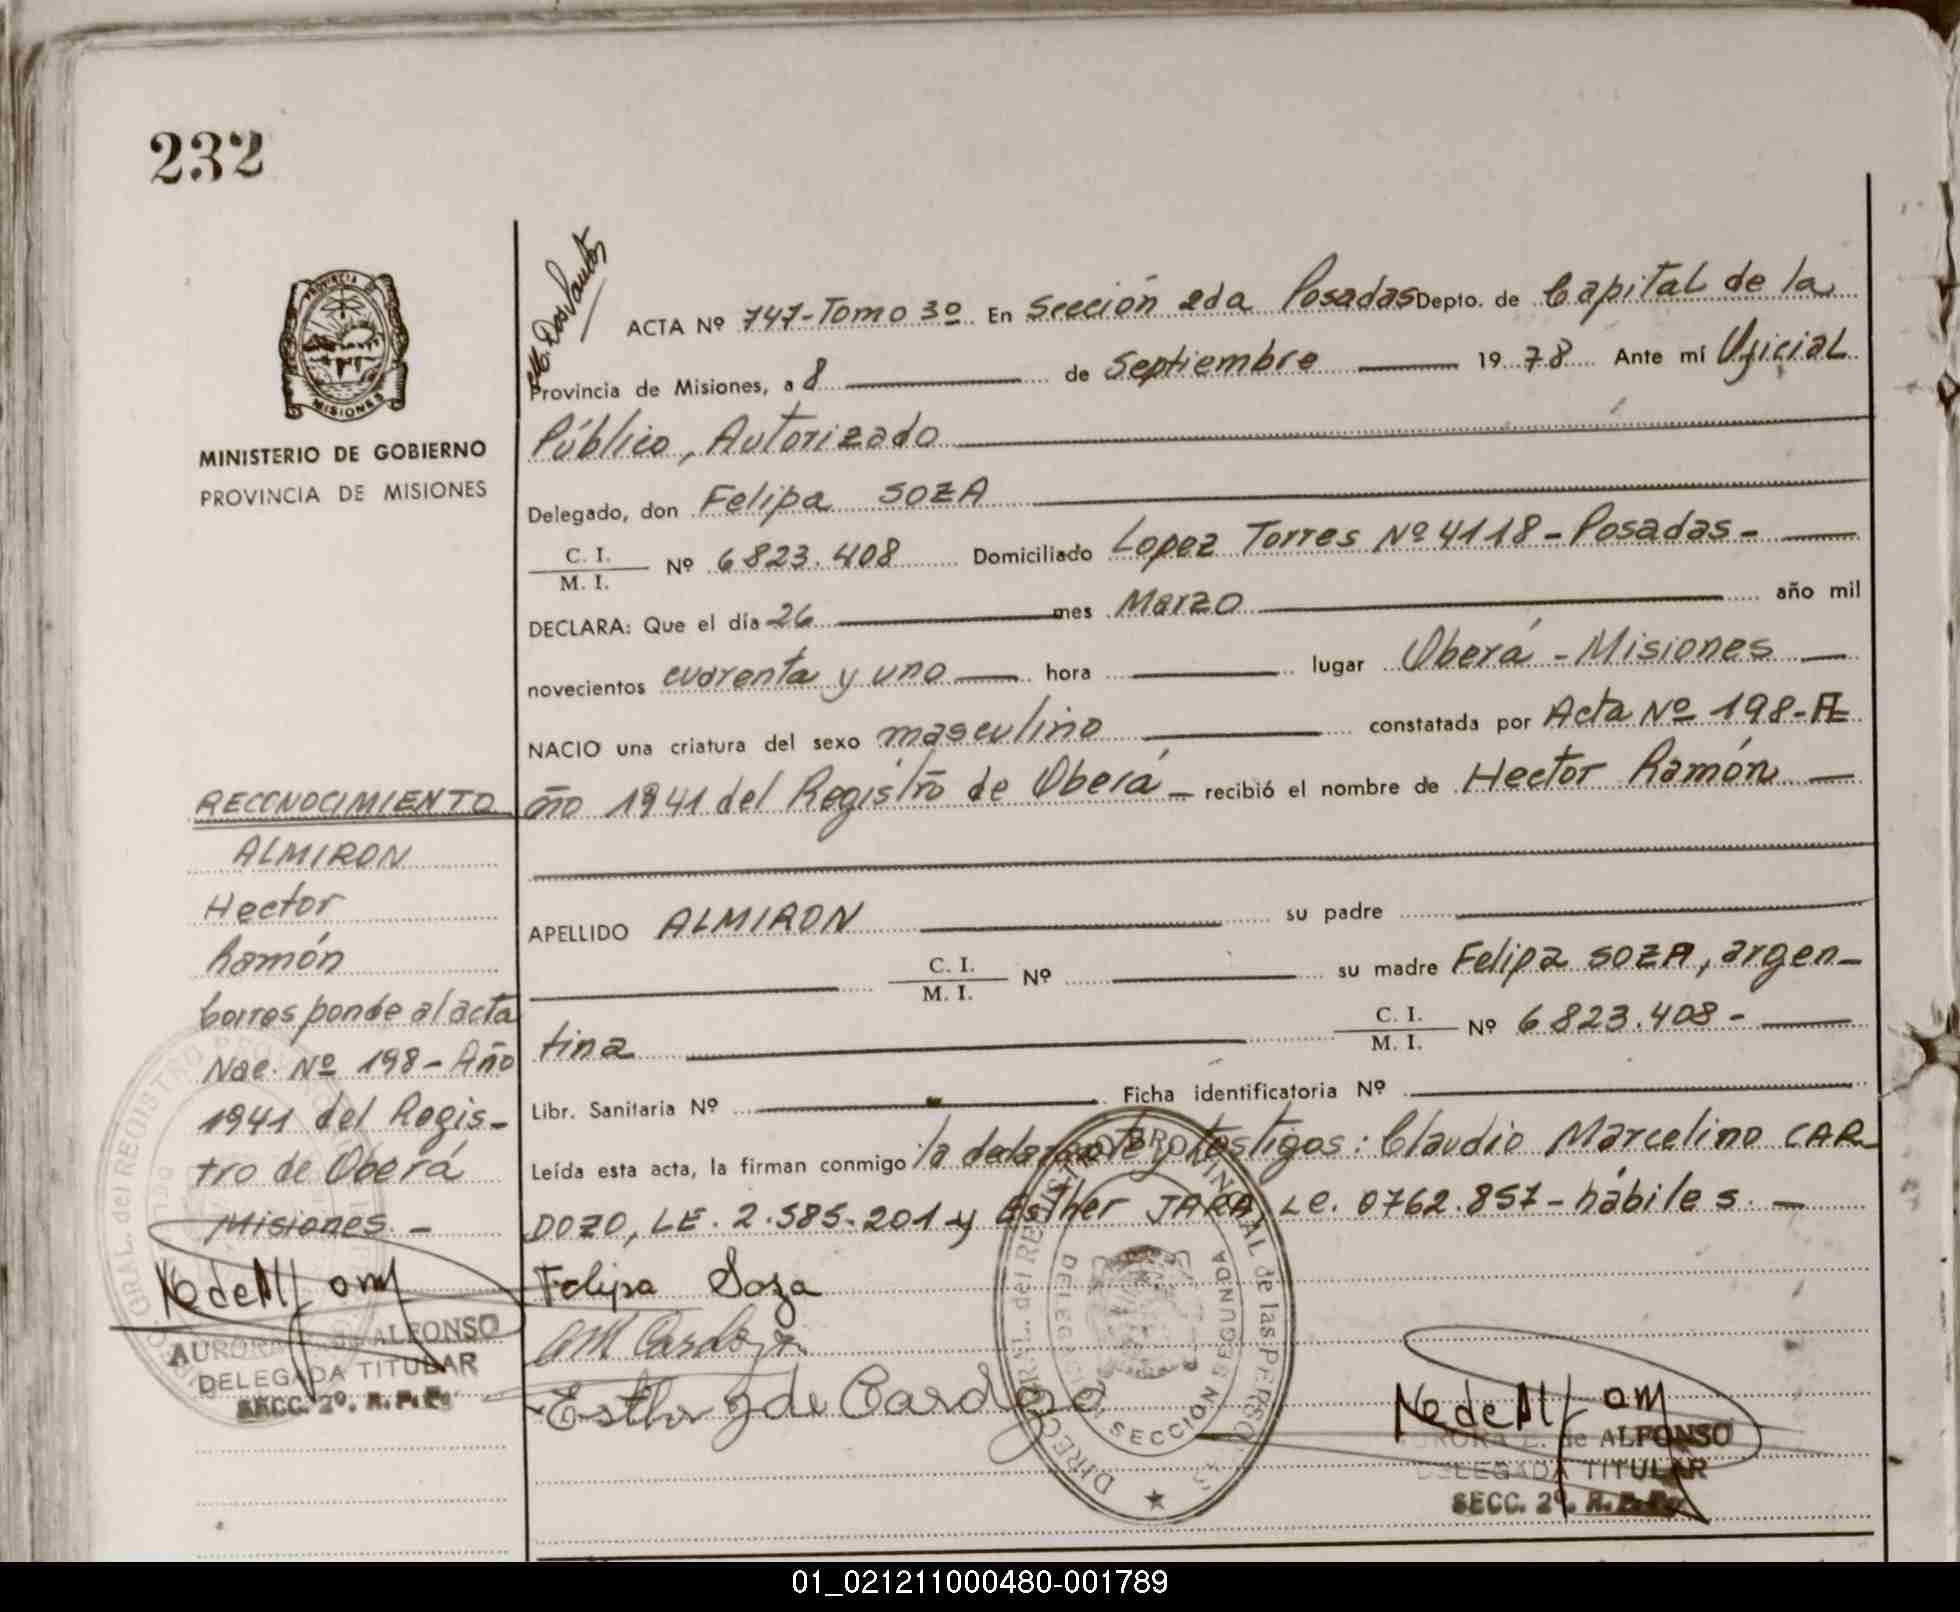 232
M. Dos Santos
PROVINCIA DE
MISIONES
MINISTERIO DE GOBIERNO
PROVINCIA DE MISIONES
ACTA Nº 747-Tomo 3º En Sección 2da Posadas Depto. de Capital de la
Provincia de Misiones, a 8 de Septiembre 1978 Ante mí Oficial
Público, Autorizado
Delegado, don Felipa SOZA
C. I.
M. I. Nº 6823.408 Domiciliado Lopez Torres Nº 4118-Posadas-
DECLARA: Que el día 26 mes Marzo año mil
novecientos cuarenta y uno hora lugar Oberá-Misiones
NACIO una criatura del sexo masculino constatada por Acta Nº 198-A
ño 1941 del Registro de Oberá recibió el nombre de Hector Ramón
APELLIDO ALMIRON su padre
C. I.
M. I. Nº su madre Felipa SOZA, argen-
tina C. I.
M. I. Nº 6823.408-
Libr. Sanitaria Nº Ficha identificatoria Nº
Leída esta acta, la firman conmigo la declarante y testigos: Claudio Marcelino CAR
DOZO, LE. 2.585.201 y Esther JARA, LE. 0762.857-hábiles.-
Felipa Soza
CM Cardozo
Esther J de Cardozo
RECONOCIMIENTO
ALMIRON
Hector
Ramón
Corresponde al acta
Nac. Nº 198-Año
1941 del Regis-
tro de Oberá
Misiones.-
AURORA de ALFONSO
DELEGADA TITULAR
SECC. 2º. R. P. P.
DIREC. GRAL. del REGISTRO PROVINCIAL de las PERSONAS
DELEGACION SECCION SEGUNDA
AURORA E. de ALFONSO
DELEGADA TITULAR
SECC. 2º. R. P. P.
01_021211000480-001789